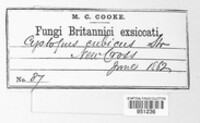 M. C. COOKE.
Fungi Britannici exsiccati.
Cystopus cubicus Str
New Cross
June 1862
No. 87
951236